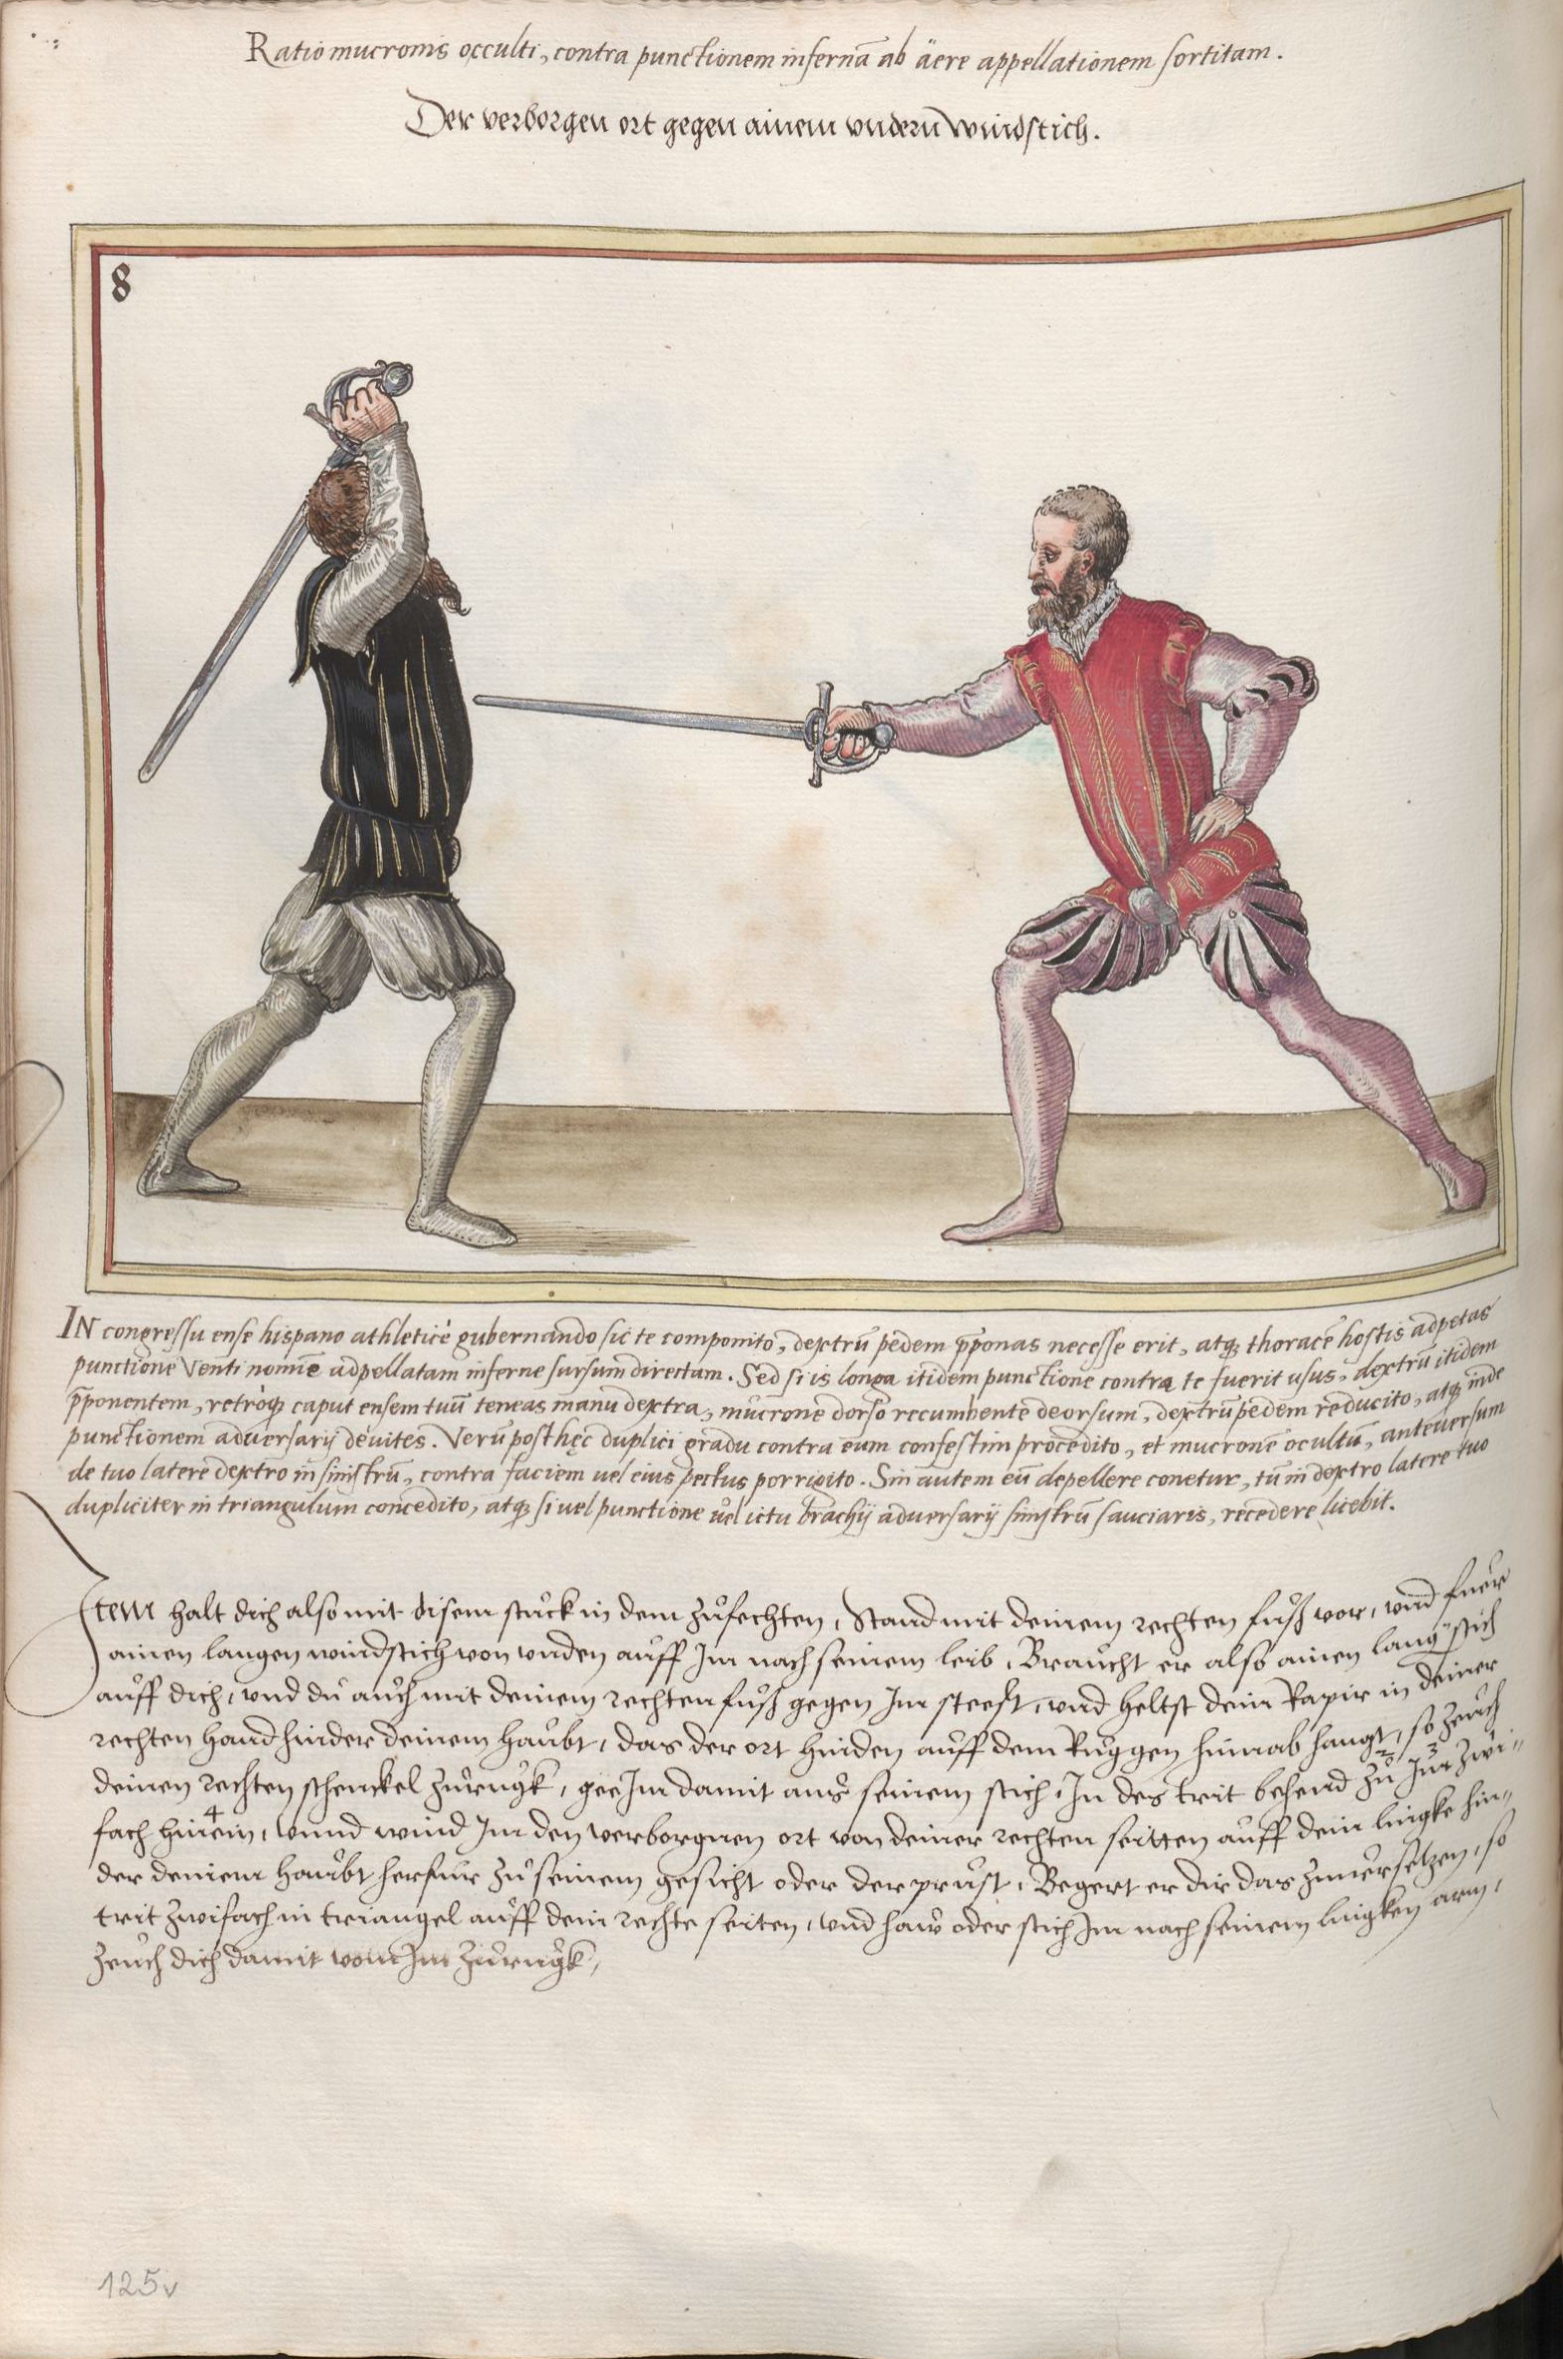 Ratio mucronis occulti, contra punctionem infernā ab äere appellationem sortitam.
Der verborgen ort gegen ainem vndern̄ windstich.
8
IN congressu ense hispano athleticè gubernando sic te componito, dextrū pedem p̄ponas necesse erit, atq; thoracē hostis adpetas
punctione Venti nomiē adpellatam inferne sursum directam. Sed si is longa itidem punctione contra te fuerit usus, dextrū itidem
p̄ponentem, retròq; caput ensem tuū teneas manu dextra, mucrone dorso recumbente deorsum, dextrū pedem reducito, atq; inde
punctionem adversarij deuites. Verū post hęc duplici gradu contra eum confestim procedito, et mucronē ocultū, anteuersum
de tuo latere dextro in sinistrū, contra faciem uel eius pectus porrigito. Sin autem eū depellere conetur, tū in dextro latere tuo
dupliciter in triangulum concedito, atq; si vel punctione uel ictu brachij adversarij sinistrū sauciaris, recedere licebit.
Item halt dich also mit disem stuck in dem zůfechten, Stand mit deinem rechten fůß vor, vnd fuer
ainen langen windstich von vnden auff Im nach seinem leib, Braucht er also ainen lang stich
auff dich, vnd du auch mit deinem rechten fůß gegen Im steest, vnd heltst dein Rapir in deiner
rechten hand hinder deinem haubt, das der ort hinden auff dem Ruggen hinab hangt, so zeuch
deinen rechten schenckel zurugk, gee Im damit aus seinem stich, In des trit behend zů Im zwi-
fach hinein, vnnd wind Im den verborgnen ort von deiner rechten seitten auff dein lingke hin-
der deinem haubt herfur zů seinem gesicht oder der prust, Begert er dir das zuuersetzen, so
trit zwifach in triangel auff dein rechte seiten, vnd haw oder stich Im nach seinem lingken arm,
zeuch dich damit vom Im zurugk,
125v